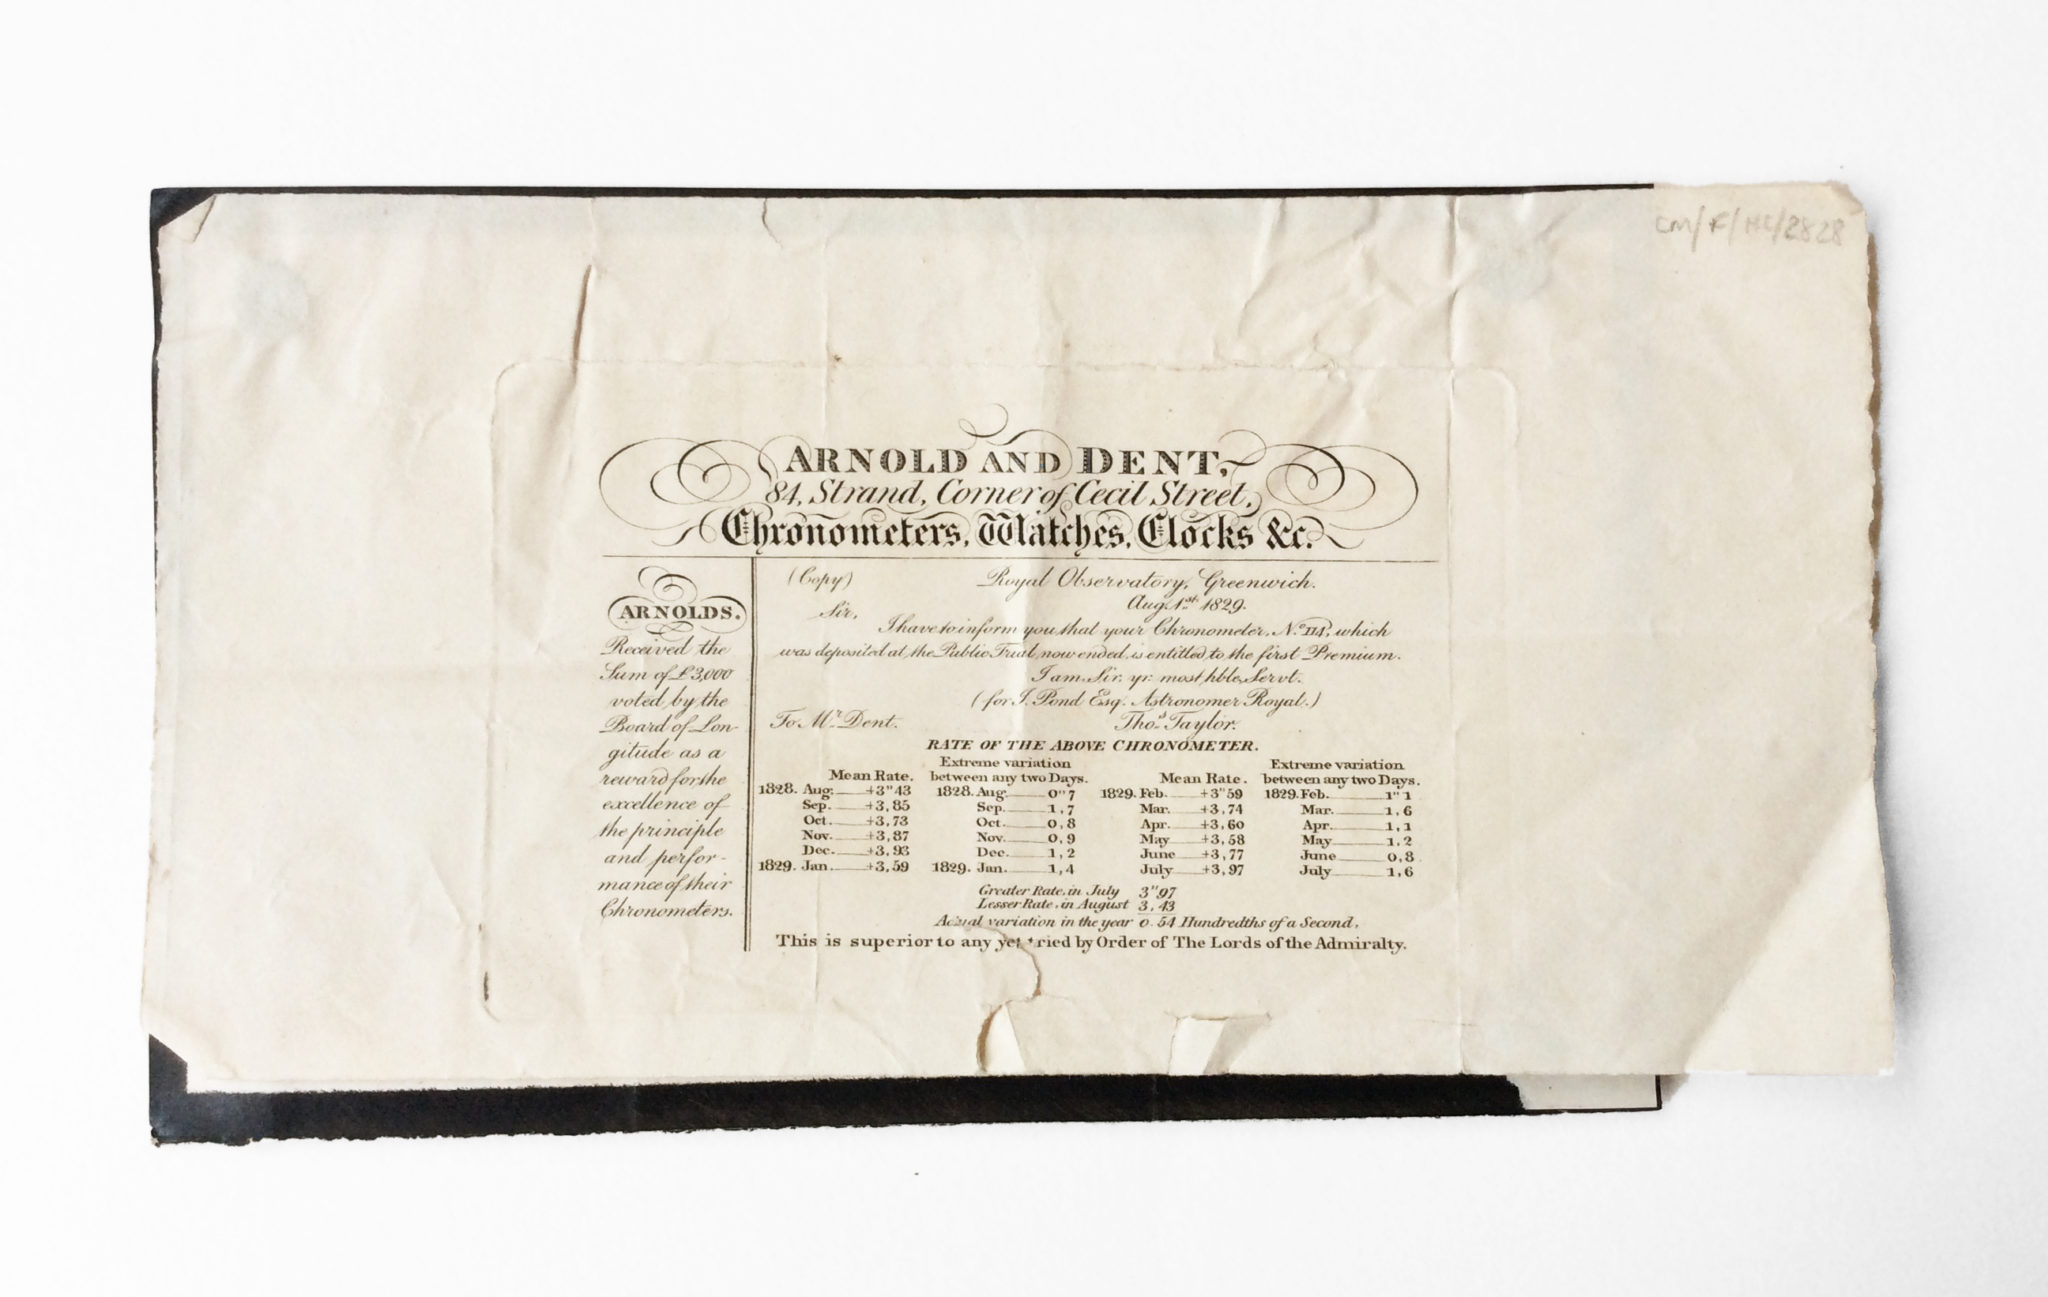 CM/F/HC/2828
ARNOLD AND DENT,
84, Strand, Corner of Cecil Street,
Chronometers, Watches, Clocks &c.
ARNOLDS.
Received the
Sum of £3,000
voted by the
Board of Lon-
gitude as a
reward for the
excellence of
the principle
and perfor-
mance of their
Chronometers.
(Copy) Royal Observatory, Greenwich.
Aug. 1st. 1829.
Sir,
I have to inform you that your Chronometer, No. 114, which
was deposited at the Public Trial, now ended, is entitled to the first Premium.
I am Sir, yr. most hble. Servt.
(for J. Pond Esq. Astronomer Royal.)
To Mr. Dent. Thos. Taylor.
RATE OF THE ABOVE CHRONOMETER.
Mean Rate. Extreme variation between any two Days. Mean Rate. Extreme variation between any two Days.
1828. Aug. +3"43 1828. Aug. 0"7 1829. Feb. +3"59 1829. Feb. 1"1
Sep. +3,85 Sep. 1,7 Mar. +3,74 Mar. 1,6
Oct. +3,73 Oct. 0,8 Apr. +3,60 Apr. 1,1
Nov. +3,87 Nov. 0,9 May +3,58 May 1,2
Dec. +3,93 Dec. 1,2 June +3,77 June 0,8
1829. Jan. +3,59 1829. Jan. 1,4 July +3,97 July 1,6
Greater Rate, in July 3"97
Lesser Rate, in August 3,43
Actual variation in the year 0.54 Hundredths of a Second.
This is superior to any yet tried by Order of The Lords of the Admiralty.